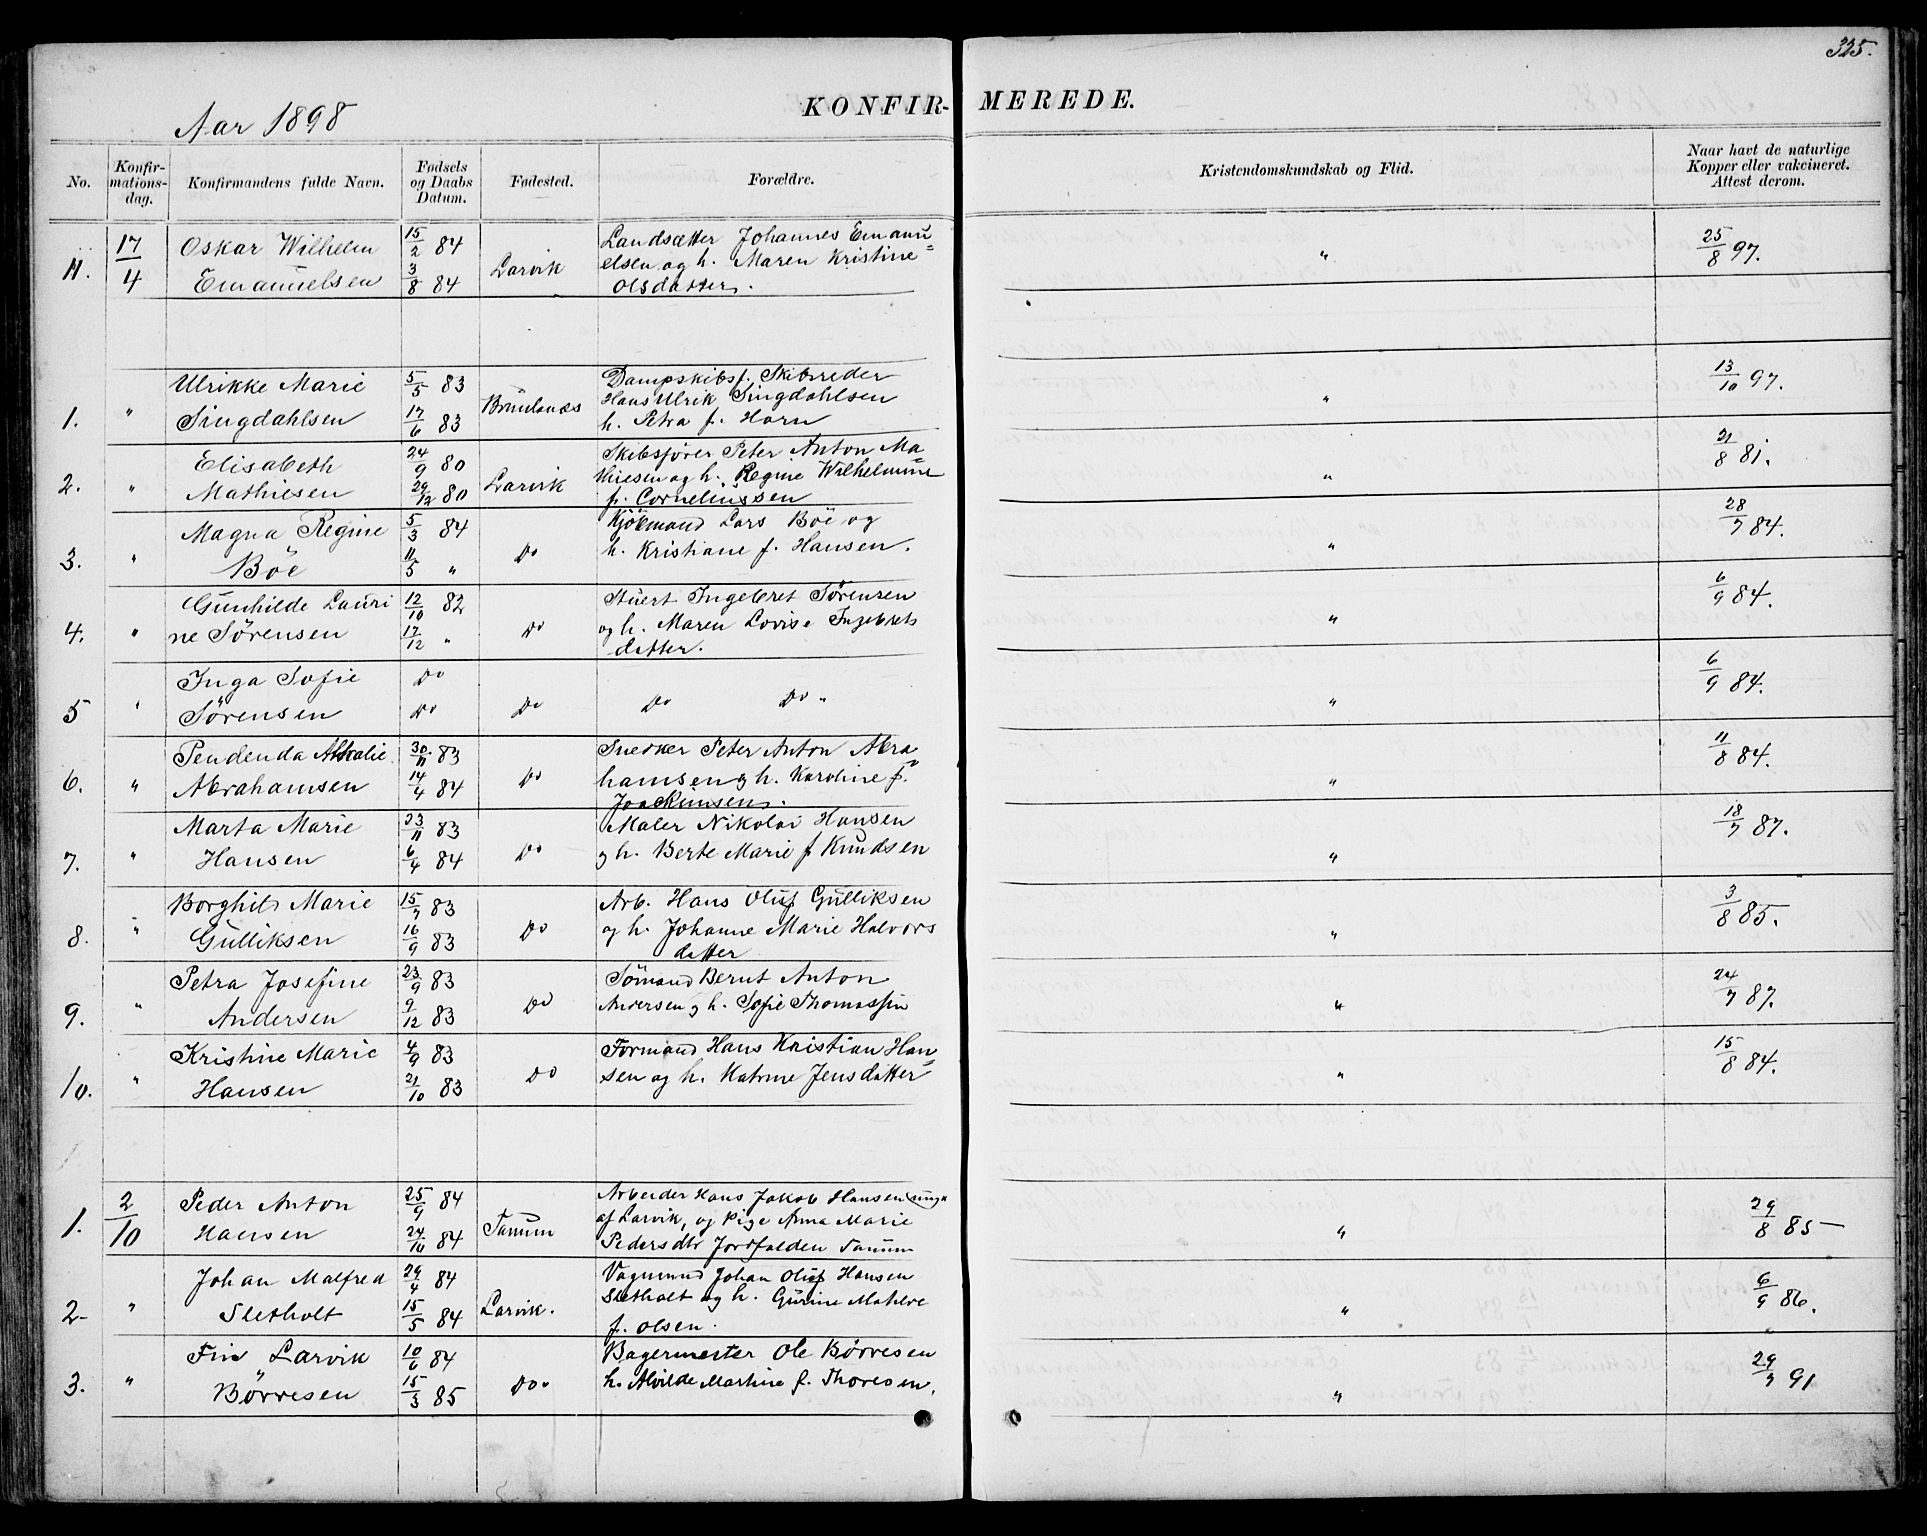 325.
Aar 1898
KONFIR- MEREDE.
No.
Konfir-
mations-
dag.
Konfirmandens fulde Navn.
Fødsels
og Daabs
Datum.
Fødested.
Forældre.
Kristendomskundskab og Flid.
Naar havt de naturlige
Kopper eller vakcineret.
Attest derom.
11. 17/4 Oskar Wilhelm
Emanuelsen
15/2 84
3/8 84
Larvik
Landsætter Johannes Emanu=
elsen og h. Maren Kristine
Olsdatter.
" 25/8 97.
1. " Ulrikke Marie
Singdahlsen
5/5 83
17/6 83
Brunlanæs
Dampskibsf. Skibsreder
Hans Ulrik Singdahlsen
h. Petra f. Horn
" 13/10 97.
2. " Elisabeth
Mathiesen
24/9 80
29/12 80
Larvik
Skibsfører Peter Anton Ma=
thiesen og h. Regine Wilhelmine
f. Corneliussen
" 21/8 81.
3. " Magna Regine
Böe
5/3 84
11/5 "
Do
Kjöbmand Lars Böe og
h. Kristiane f. Hansen.
" 28/7 84.
4. " Gunhilde Lauri
ne Sörensen
12/10 82
17/12 "
Do
Stuert Ingebret Sörensen
og h. Maren Lovise Ingebrets
datter.
" 6/9 84.
5 " Inga Sofie
Sörensen
Do
Do
Do
Do Do "
" 6/9 84.
6. " Pendenda
Abrahamsen
30/11 83
14/4 84
Do
Snedker Peter Anton Abra
hamsen og h. Karoline f.
Joackimsen.
" 11/8 84.
7. " Marta Marie
Hansen
23/11 83
6/4 84
Do
Maler Nikolai Hansen
og h. Berte Marie f Knudsen
" 18/7 87.
8. " Borghild Marie
Gulliksen
15/7 83
16/9 83
Do
Arb. Hans Oluf Gulliksen
og h. Johanne Marie Halvors
datter
" 3/8 85.
9. " Petra Josefine
Andersen
23/9 83
9/12 83
Do
Sömand Bernt Anton
Andersen og h. Sofie Thomassen
" 24/7 87.
10. " Kristine Marie
Hansen
4/9 83
21/10 83
Do
Formand Hans Kristian Han=
sen og h. Katrine Jensdatter
" 15/8 84.
1. 2/10 Peder Anton
Hansen
25/9 84
24/10 84
Tanum
Arbeider Hans Jakob Hansen (ungk
af Larvik, og Pige Anna Marie
Pedersdtr Jordfalden Tanum
" 29/8 85
2 " Johan Malfred
Sletholt
29/4 84
15/5 84
Larvik.
Vognmand Johan Oluf Hansen
Sletholt og h. Gurine
f. Olsen.
" 6/9 86.
3. " Fin Larvik
Börresen
10/6 84
15/3 85
Do.
Bagermester Ole Börresen
h. Alvilde Martine f. Thoresen.
" 29/7 91